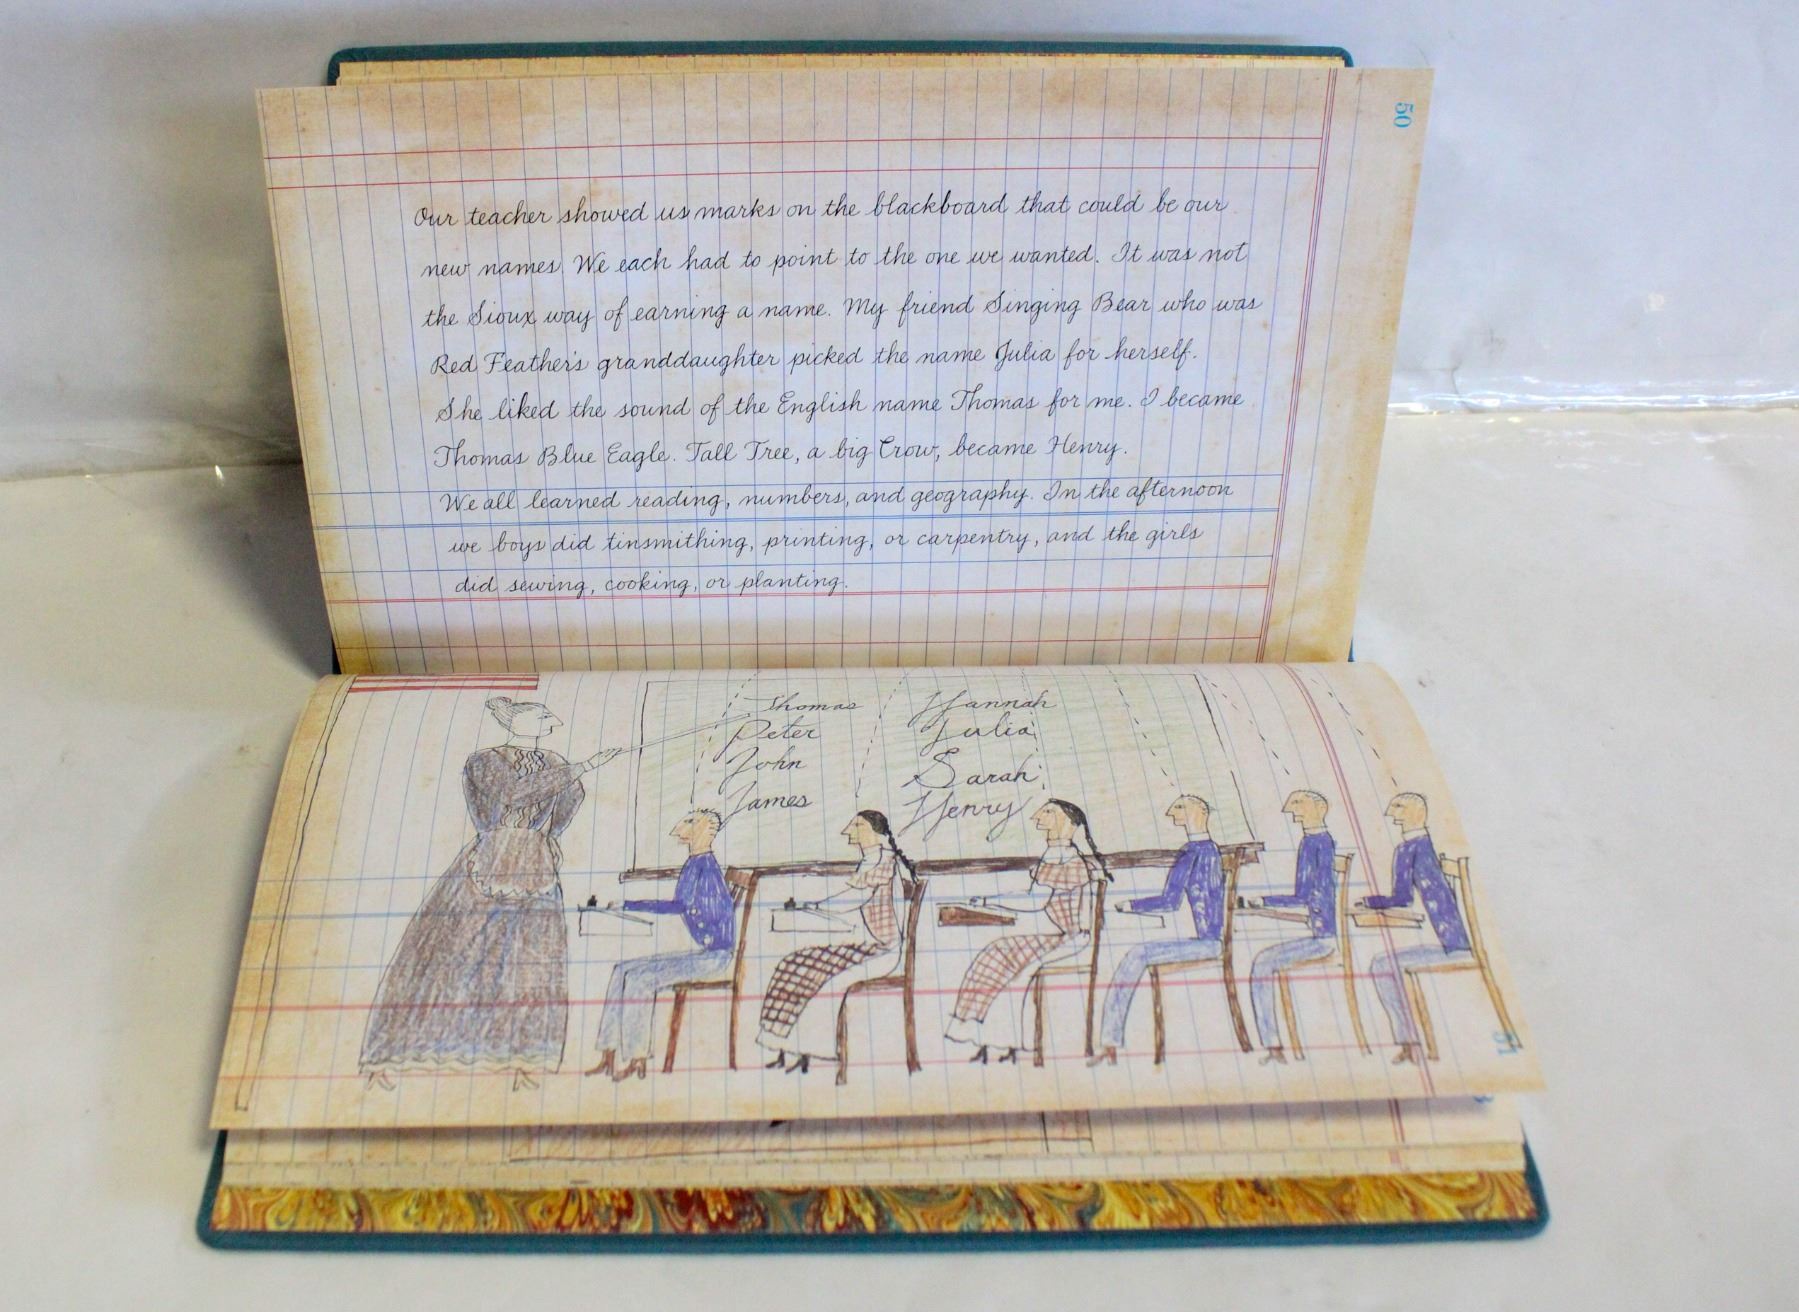 50
Our teacher showed us marks on the blackboard that could be our
new names. We each had to point to the one we wanted. It was not
the Sioux way of earning a name. My friend Singing Bear who was
Red Feather's granddaughter picked the name Julia for herself.
She liked the sound of the English name Thomas for me. I became
Thomas Blue Eagle. Tall Tree, a big Crow, became Henry.
We all learned reading, numbers, and geography. In the afternoon
we boys did tinsmithing, printing, or carpentry, and the girls
did sewing, cooking, or planting.
Thomas Hannah
Peter Julia
John Sarah
James Henry
51